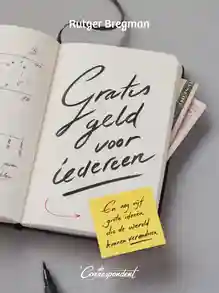 Rutger Bregman
Gratis
geld
voor
iedereen
En nog vijf
grote ideeën
die de wereld
kunnen veranderen
de Correspondent